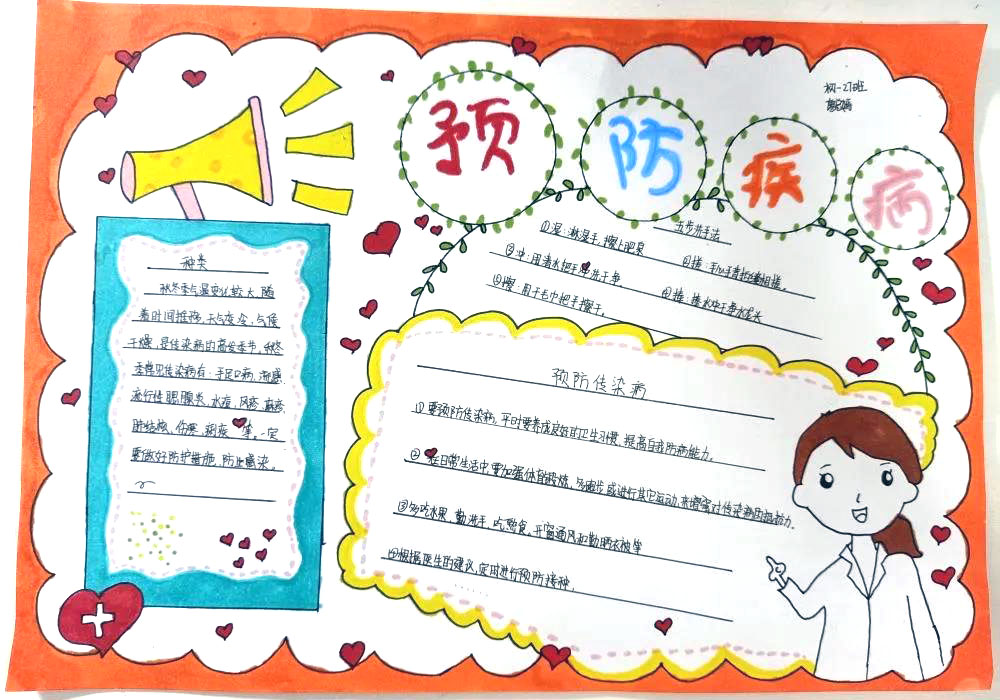 预防疾病
初一27班
种类
秋冬季气温变化较大,随
着时间推移,天气变冷,气候
干燥,是传染病的高发季节。秋冬
季常见传染病有:手足口病,流感
流行性腮腺炎,水痘,风疹,麻疹
肺结核,伤寒,痢疾等。一定
要做好防护措施,防止感染。
五步洗手法
①湿:淋湿手,擦上肥皂
②搓:手心手背指缝相搓。
③冲:用清水把手洗干净。
④捧:捧水冲干净水龙头
⑤擦:用干毛巾把手擦干。
预防传染病
①要预防传染病,平时要养成良好的卫生习惯,提高自我防病能力。
②在日常生活中,要加强体育锻炼,多散步或进行其它运动,来增强对传染病的抵抗力。
③多吃水果,勤洗手,吃熟食,开窗通风和勤晒衣被等
④根据医生的建议,定时进行预防接种。